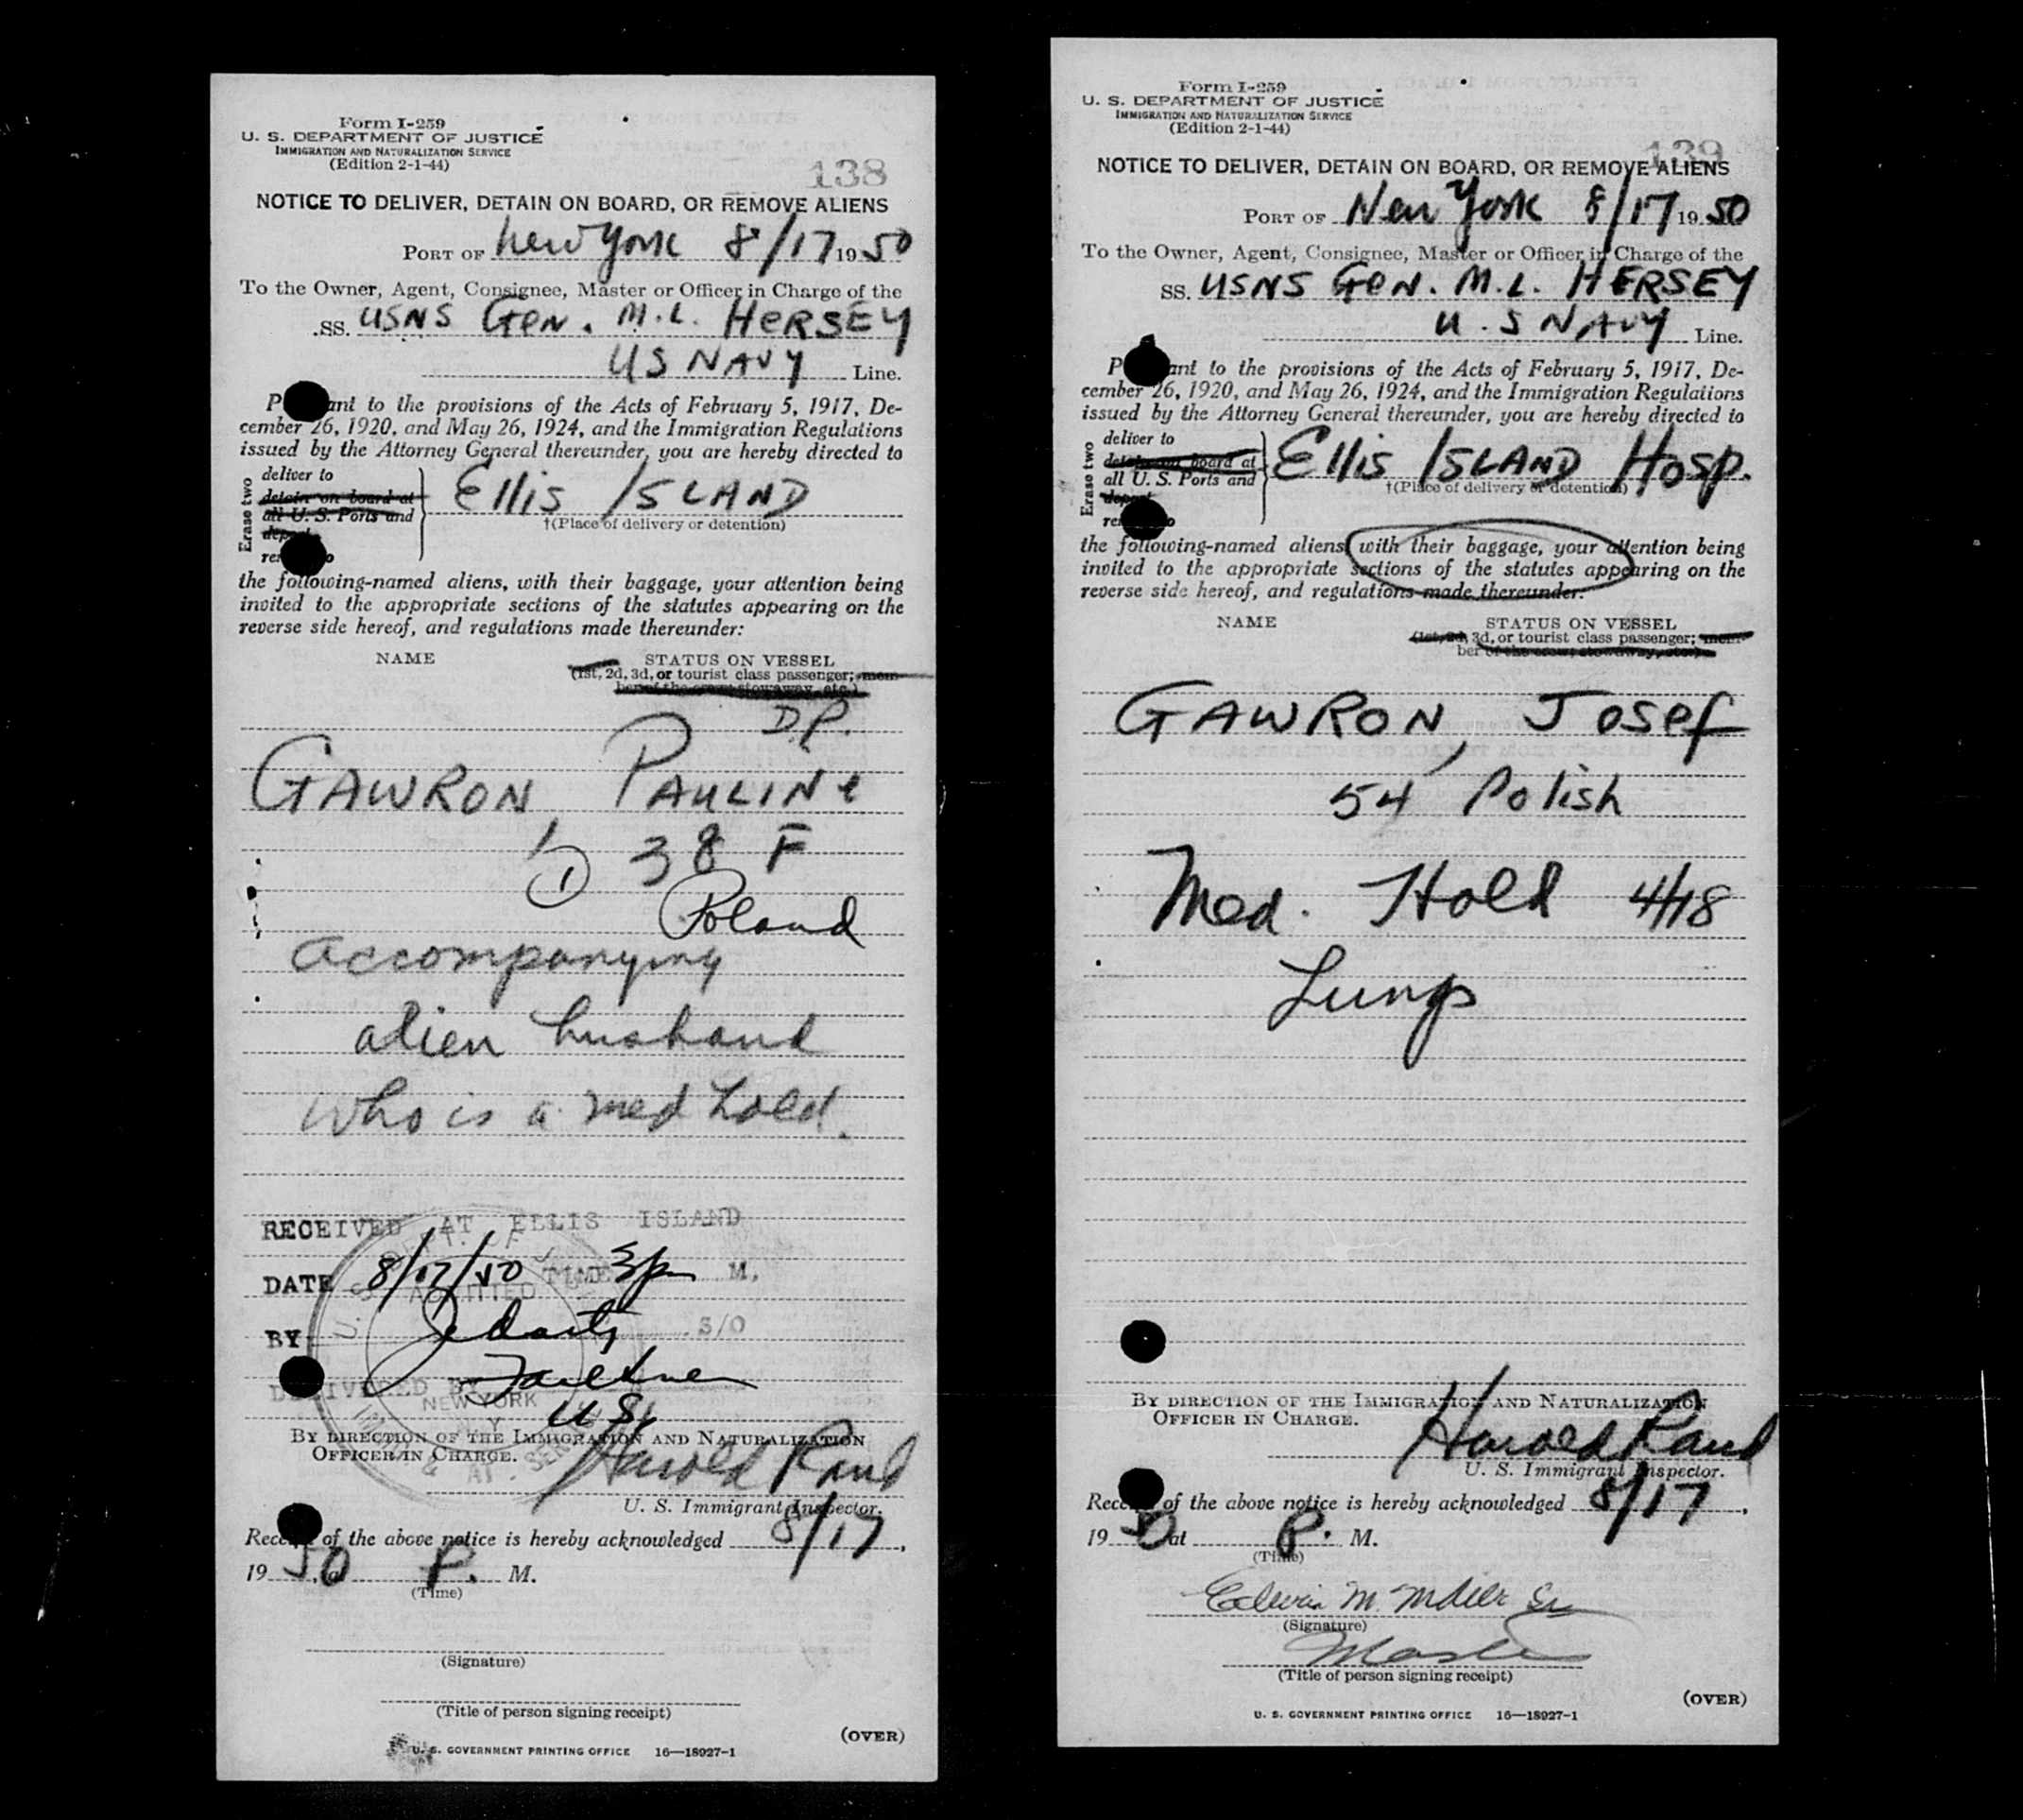 Form I-259
U. S. DEPARTMENT OF JUSTICE
IMMIGRATION AND NATURALIZATION SERVICE
(Edition 2-1-44)
138
NOTICE TO DELIVER, DETAIN ON BOARD, OR REMOVE ALIENS
PORT OF New York 8/17 1950
To the Owner, Agent, Consignee, Master or Officer in Charge of the
SS. USNS GEN. M.L. HERSEY
US NAVY Line.
P ant to the provisions of the Acts of February 5, 1917, De-
cember 26, 1920, and May 26, 1924, and the Immigration Regulations
issued by the Attorney General thereunder, you are hereby directed to
Erase two
deliver to
detain on board at
all U. S. Ports and
Ellis ISLAND
†(Place of delivery or detention)
the following-named aliens, with their baggage, your attention being
invited to the appropriate sections of the statutes appearing on the
reverse side hereof, and regulations made thereunder:
NAME STATUS ON VESSEL
(1st, 2d, 3d, or tourist class passenger; mem-
ber of the crew; stowaway, etc.)
D.P.
GAWRON, PAULINE
① 38 F
Poland
accompanying
alien husband
who is a med hold.
RECEIVED AT ELLIS ISLAND
DATE 8/17/50 TIME 3p M,
BY S/O
DELIVERED BY Faulkner
U.S.
ADMITTED
NEW YORK
N. Y.
BY DIRECTION OF THE IMMIGRATION AND NATURALIZATION
OFFICER IN CHARGE.
Harold Rand
U. S. Immigrant Inspector.
Rece of the above notice is hereby acknowledged 8/17,
19 50, P. M.
(Time)
(Signature)
(Title of person signing receipt)
(OVER)
U. S. GOVERNMENT PRINTING OFFICE 16—18927-1
Form I-259
U. S. DEPARTMENT OF JUSTICE
IMMIGRATION AND NATURALIZATION SERVICE
(Edition 2-1-44)
139
NOTICE TO DELIVER, DETAIN ON BOARD, OR REMOVE ALIENS
PORT OF New York 8/17 1950
To the Owner, Agent, Consignee, Master or Officer in Charge of the
SS. USNS GEN. M.L. HERSEY
U.S NAVY Line.
P ant to the provisions of the Acts of February 5, 1917, De-
cember 26, 1920, and May 26, 1924, and the Immigration Regulations
issued by the Attorney General thereunder, you are hereby directed to
Erase two
deliver to
detain on board at
all U. S. Ports and
Ellis ISLAND Hosp.
†(Place of delivery or detention)
the following-named aliens, with their baggage, your attention being
invited to the appropriate sections of the statutes appearing on the
reverse side hereof, and regulations made thereunder:
NAME STATUS ON VESSEL
(1st, 2d, 3d, or tourist class passenger; mem-
ber of the crew; stowaway, etc.)
GAWRON, Josef
54 Polish
Med. Hold
Lungs
BY DIRECTION OF THE IMMIGRATION AND NATURALIZATION
OFFICER IN CHARGE.
Harold Rand
U. S. Immigrant Inspector.
Rece of the above notice is hereby acknowledged 8/17,
19 50 at P. M.
(Time)
Edwin M.
(Signature)
Master
(Title of person signing receipt)
(OVER)
U. S. GOVERNMENT PRINTING OFFICE 16—18927-1